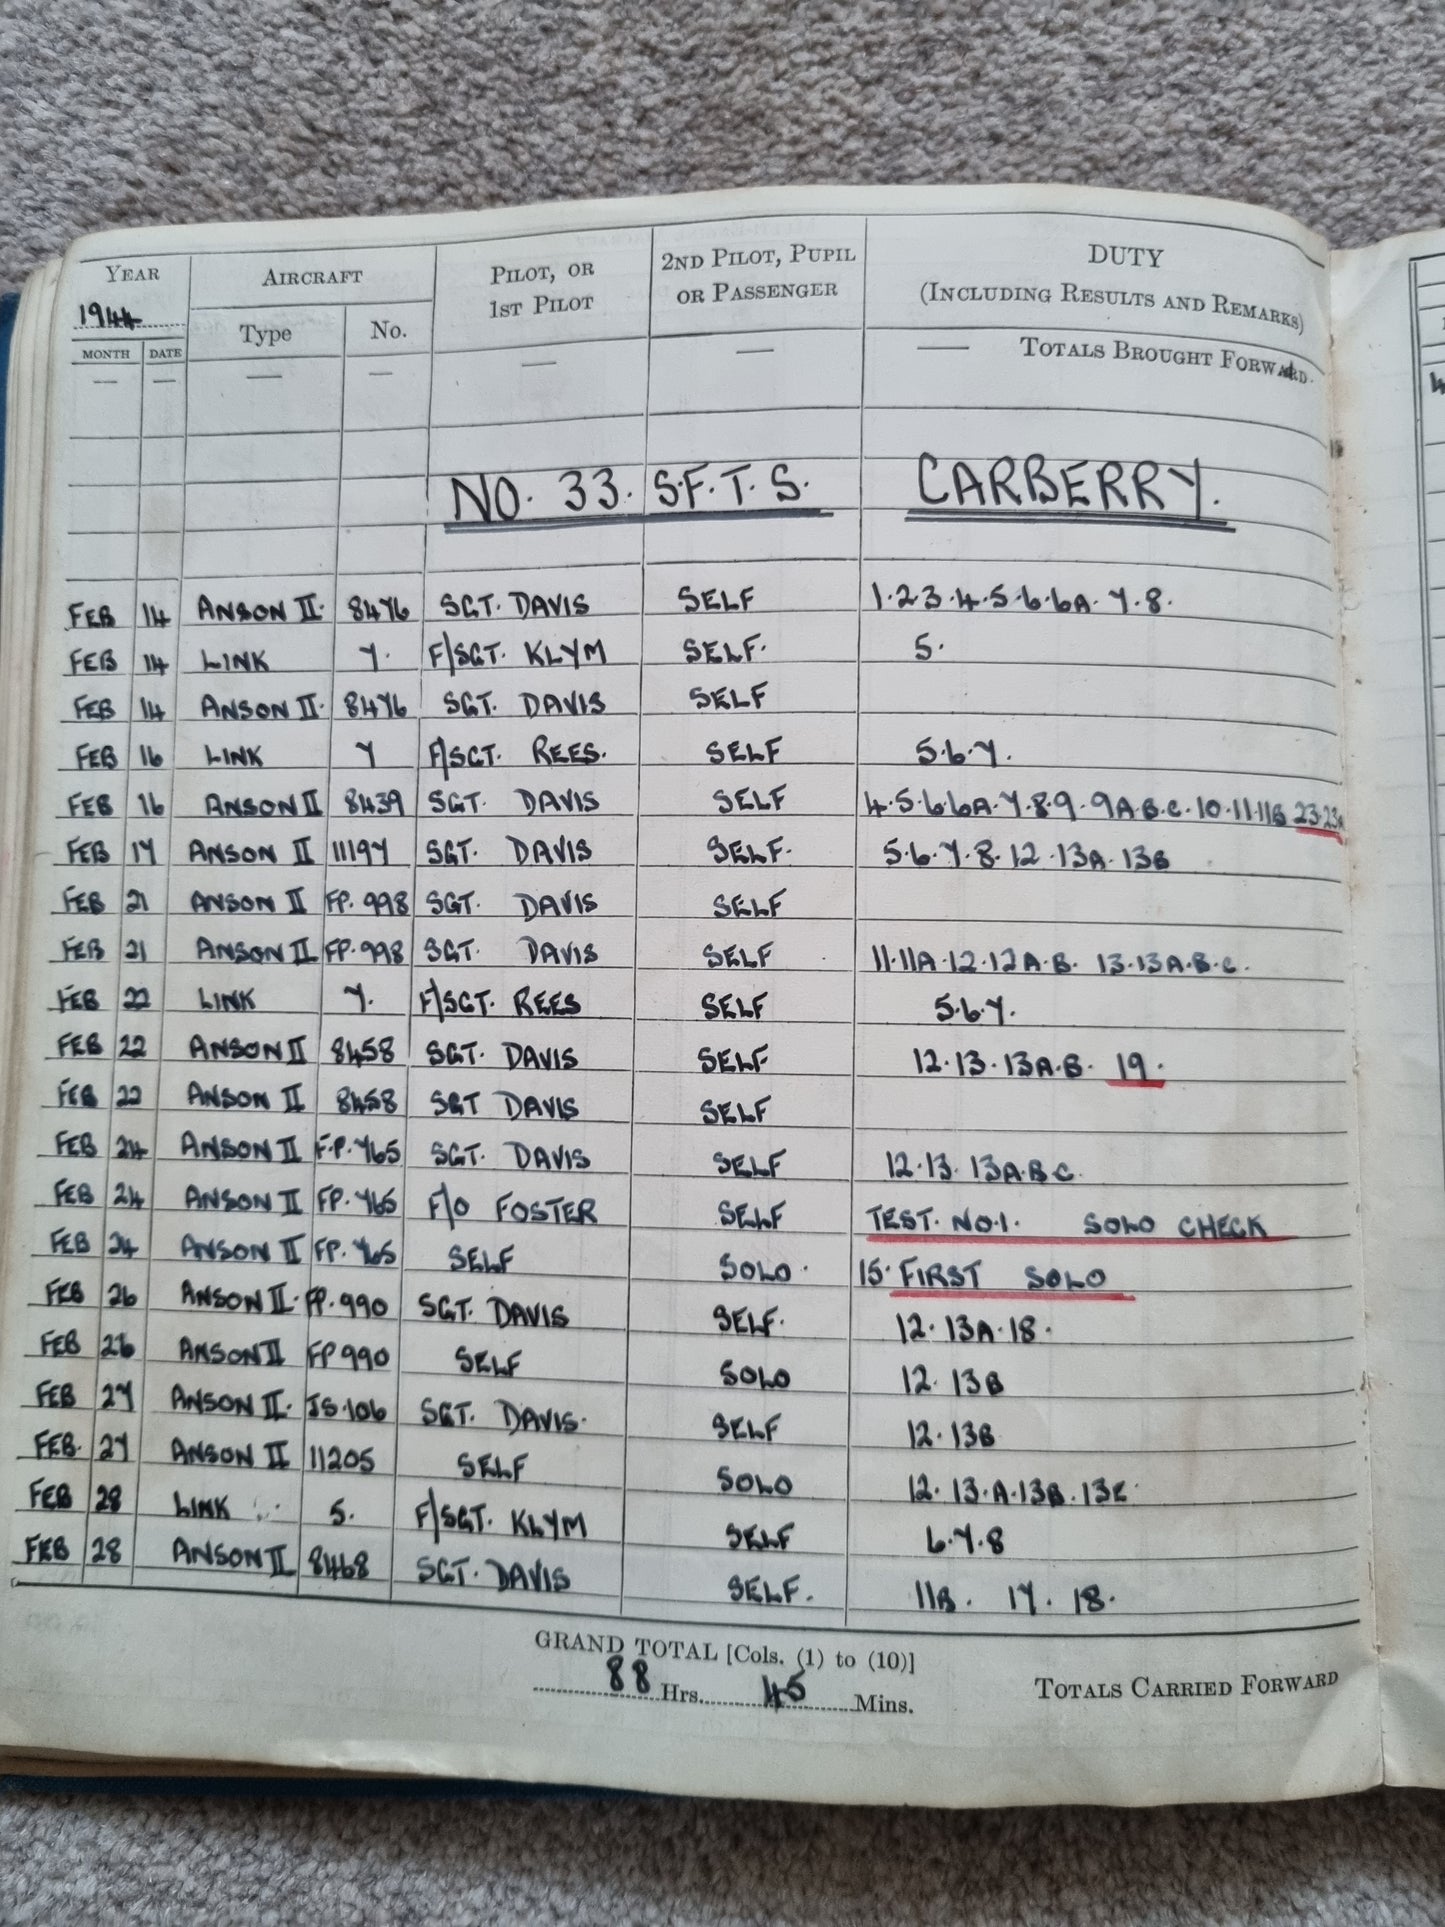 YEAR AIRCRAFT PILOT, OR 2ND PILOT, PUPIL DUTY
1944 Type No. 1ST PILOT OR PASSENGER (INCLUDING RESULTS AND REMARKS)
MONTH DATE
— — — — — — — TOTALS BROUGHT FORWARD.
NO. 33. S.F.T.S. CARBERRY.
FEB 14 ANSON II. 8476 SGT. DAVIS SELF 1.2.3.4.5.6.6A.7.8.
FEB 14 LINK 7. F/SGT. KLYM SELF. 5.
FEB 14 ANSON II. 8476 SGT. DAVIS SELF
FEB 16 LINK 7 F/SGT. REES. SELF 5.6.7.
FEB 16 ANSON II 8439 SGT. DAVIS SELF 4.5.6.6A.7.8.9.9A.B.C.10.11.11B 23.23A
FEB 17 ANSON II 11197 SGT. DAVIS SELF. 5.6.7.8.12.13A.13B
FEB 21 ANSON II FP.998 SGT. DAVIS SELF
FEB 21 ANSON II FP.998 SGT. DAVIS SELF 11.11A.12.12A.B. 13.13A.B.C.
FEB 22 LINK 7. F/SGT. REES SELF 5.6.7.
FEB 22 ANSON II 8458 SGT. DAVIS SELF 12.13.13A.B. 19.
FEB 22 ANSON II 8458 SGT DAVIS SELF
FEB 24 ANSON II F.P.765 SGT. DAVIS SELF 12.13. 13A.B.C.
FEB 24 ANSON II FP.765 F/O FOSTER SELF TEST. NO.1. SOLO CHECK
FEB 24 ANSON II FP.765 SELF SOLO. 15. FIRST SOLO
FEB 26 ANSON II. FP.990 SGT. DAVIS SELF. 12.13A.18.
FEB 26 ANSON II FP 990 SELF SOLO 12.13B
FEB 27 ANSON II. JS.106 SGT. DAVIS. SELF 12.13B
FEB. 27 ANSON II 11205 SELF SOLO 12.13.A.13B.13C.
FEB 28 LINK 5. F/SGT. KLYM SELF 6.7.8
FEB 28 ANSON II 8468 SGT. DAVIS SELF. 11B. 17. 18.
GRAND TOTAL [Cols. (1) to (10)]
88 Hrs. 45 Mins. TOTALS CARRIED FORWARD